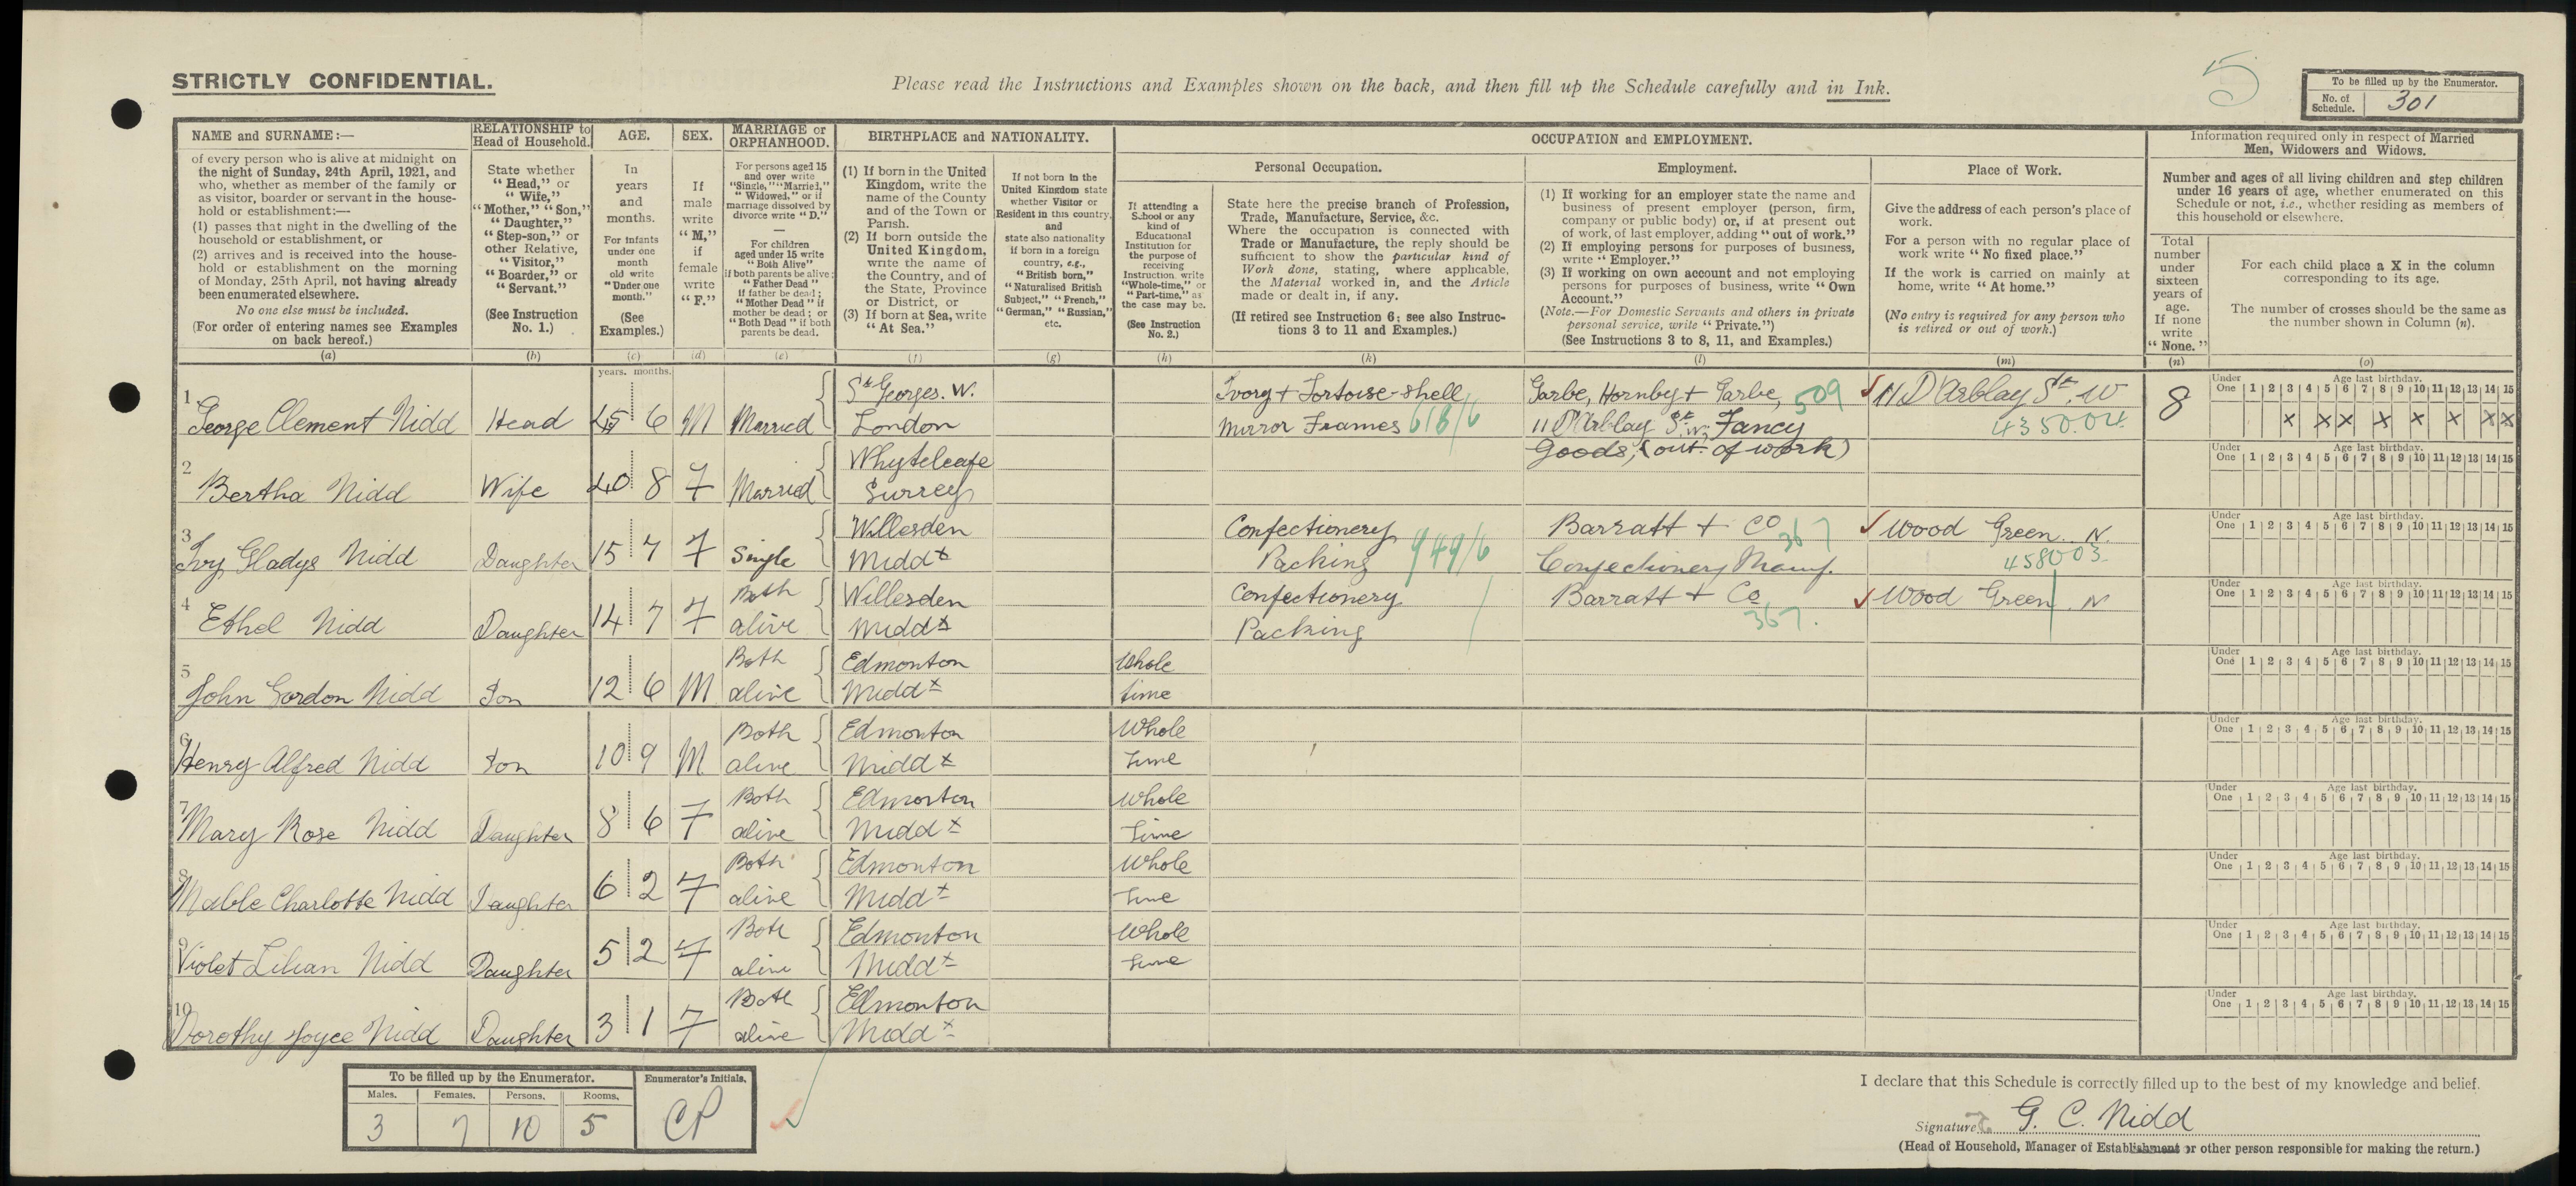 STRICTLY CONFIDENTIAL.
Please read the Instructions and Examples shown on the back, and then fill up the Schedule carefully and in Ink.
5
To be filled up by the Enumerator.
No. of Schedule. 301
NAME and SURNAME:—
of every person who is alive at midnight on
the night of Sunday, 24th April, 1921, and
who, whether as member of the family or
as visitor, boarder or servant in the house-
hold or establishment:—
(1) passes that night in the dwelling of the
household or establishment, or
(2) arrives and is received into the house-
hold or establishment on the morning
of Monday, 25th April, not having already
been enumerated elsewhere.
No one else must be included.
(For order of entering names see Examples
on back hereof.)
(a)
RELATIONSHIP to
Head of Household.
State whether
"Head," or
"Wife,"
"Mother," "Son,"
"Daughter,"
"Step-son," or
other Relative,
"Visitor,"
"Boarder," or
"Servant."
(See Instruction
No. 1.)
(b)
AGE.
In
years
and
months.
For infants
under one
month
old write
"Under one
month."
(See
Examples.)
(c)
SEX.
If
male
write
"M,"
if
female
write
"F."
(d)
MARRIAGE or
ORPHANHOOD.
For persons aged 15
and over write
"Single," "Married,"
"Widowed," or if
marriage dissolved by
divorce write "D."
For children
aged under 15 write
"Both Alive"
if both parents be alive;
"Father Dead"
if father be dead;
"Mother Dead" if
mother be dead; or
"Both Dead" if both
parents be dead.
(e)
BIRTHPLACE and NATIONALITY.
(1) If born in the United
Kingdom, write the
name of the County
and of the Town or
Parish.
(2) If born outside the
United Kingdom,
write the name of
the Country, and of
the State, Province
or District, or
(3) If born at Sea, write
"At Sea."
(f)
If not born in the
United Kingdom state
whether Visitor or
Resident in this country,
and
state also nationality
if born in a foreign
country, e.g.,
"British born,"
"Naturalised British
Subject," "French,"
"German," "Russian,"
etc.
(g)
If attending a
School or any
kind of
Educational
Institution for
the purpose of
receiving
Instruction write
"Whole-time," or
"Part-time," as
the case may be.
(See Instruction
No. 2.)
(h)
OCCUPATION and EMPLOYMENT.
Personal Occupation.
State here the precise branch of Profession,
Trade, Manufacture, Service, &c.
Where the occupation is connected with
Trade or Manufacture, the reply should be
sufficient to show the particular kind of
Work done, stating, where applicable,
the Material worked in, and the Article
made or dealt in, if any.
(If retired see Instruction 6; see also Instruc-
tions 3 to 11 and Examples.)
(k)
Employment.
(1) If working for an employer state the name and
business of present employer (person, firm,
company or public body) or, if at present out
of work, of last employer, adding "out of work."
(2) If employing persons for purposes of business,
write "Employer."
(3) If working on own account and not employing
persons for purposes of business, write "Own
Account."
(Note.—For Domestic Servants and others in private
personal service, write "Private.")
(See Instructions 3 to 8, 11, and Examples.)
(l)
Place of Work.
Give the address of each person's place of
work.
For a person with no regular place of
work write "No fixed place."
If the work is carried on mainly at
home, write "At home."
(No entry is required for any person who
is retired or out of work.)
(m)
Information required only in respect of Married
Men, Widowers and Widows.
Number and ages of all living children and step children
under 16 years of age, whether enumerated on this
Schedule or not, i.e., whether residing as members of
this household or elsewhere.
Total
number
under
sixteen
years of
age.
If none
write
"None."
(n)
For each child place a X in the column
corresponding to its age.
The number of crosses should be the same as
the number shown in Column (n).
(o)
years. months.
Under One Age last birthday. 1 2 3 4 5 6 7 8 9 10 11 12 13 14 15
1 George Clement Nidd Head 45 6 M Married St Georges. W. London
Ivory + Tortoise-shell Mirror Frames 618/6
Garbe, Hornby + Garbe, 509
11 D'Arblay St. W. Fancy
Goods, (out of work)
11 D'Arblay St. W 435004
8 X X X X X X X X
Under One Age last birthday. 1 2 3 4 5 6 7 8 9 10 11 12 13 14 15
2 Bertha Nidd Wife 40 8 F Married Whyteleafe Surrey
Under One Age last birthday. 1 2 3 4 5 6 7 8 9 10 11 12 13 14 15
3 Ivy Gladys Nidd Daughter 15 7 F Single Willesden Middx
Confectionery Packing 949/6
Barratt + Co 367
Confectionery Manf.
Wood Green. N 458003
Under One Age last birthday. 1 2 3 4 5 6 7 8 9 10 11 12 13 14 15
4 Ethel Nidd Daughter 14 7 F Both alive Willesden Middx
Confectionery Packing
Barratt + Co 367.
Wood Green. N
Under One Age last birthday. 1 2 3 4 5 6 7 8 9 10 11 12 13 14 15
5 John Gordon Nidd Son 12 6 M Both alive Edmonton Middx Whole time
Under One Age last birthday. 1 2 3 4 5 6 7 8 9 10 11 12 13 14 15
6 Henry Alfred Nidd Son 10 9 M Both alive Edmonton Middx Whole Time
Under One Age last birthday. 1 2 3 4 5 6 7 8 9 10 11 12 13 14 15
7 Mary Rose Nidd Daughter 8 6 F Both alive Edmonton Middx Whole Time
Under One Age last birthday. 1 2 3 4 5 6 7 8 9 10 11 12 13 14 15
8 Mable Charlotte Nidd Daughter 6 2 F Both alive Edmonton Middx Whole Time
Under One Age last birthday. 1 2 3 4 5 6 7 8 9 10 11 12 13 14 15
9 Violet Lilian Nidd Daughter 5 2 F Both alive Edmonton Middx Whole Time
Under One Age last birthday. 1 2 3 4 5 6 7 8 9 10 11 12 13 14 15
10 Dorothy Joyce Nidd Daughter 3 1 F Both alive Edmonton Middx
Under One Age last birthday. 1 2 3 4 5 6 7 8 9 10 11 12 13 14 15
To be filled up by the Enumerator.
Males. Females. Persons. Rooms.
3 7 10 5
Enumerator's Initials.
CP
I declare that this Schedule is correctly filled up to the best of my knowledge and belief.
Signature G. C. Nidd
(Head of Household, Manager of Establishment or other person responsible for making the return.)